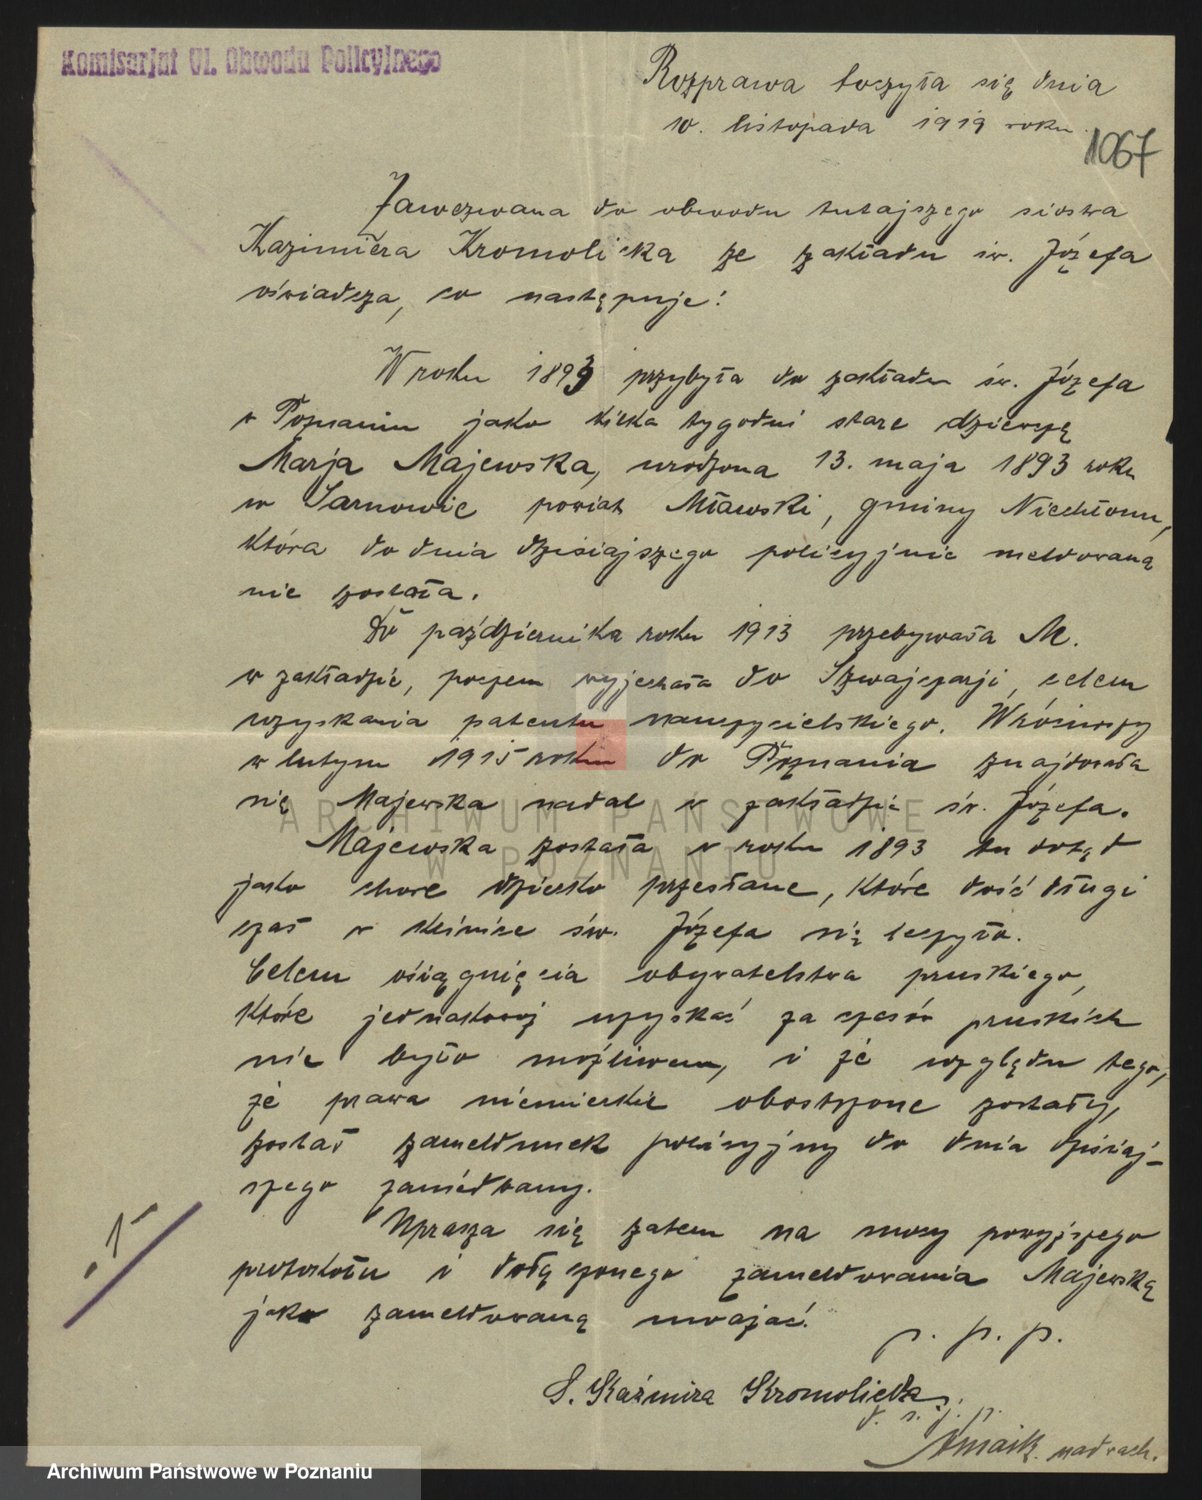 Komisarjat VI. Obwodu Policyjnego
Rozprawa toczyła się dnia
10. listopada 1919 roku.
1067
Zawezwana do obwodu tutajszego siostra
Kazimiera Kromolicka ze zakładu św. Józefa
oświadcza, co następuje:
W roku 1893 przybyła do zakładu św. Józefa
w Poznaniu jako kilka tygodni stare dziewczę
Marja Majewska, urodzona 13. maja 1893 roku
w Sarnowie powiat Mławski, gminy Niechłonu,
która do dnia dzisiajszego policyjnie meldowaną
nie została.
Do października roku 1913 przebywała M.
w zakładzie, poczem wyjechała do Szwajcarji, celem
uzyskania patentu nauczycielskiego. Wróciwszy
w lutym 1915 roku do Poznania znajdowała
się Majewska nadal w zakładzie św. Józefa.
ARCHIWUM PAŃSTWOWE
W POZNANIU
Majewska została w roku 1893 tu dotąd
jako chore dziecko przesłane, które dość długi
czas w klinice św. Józefa się leczyło.
Celem osiągnięcia obywatelstwa pruskiego,
które jednakowoż uzyskać za czasów pruskich
nie było możliwem, i ze względu tego,
że prawa niemieckie obostrzone zostały,
został zameldunek policyjny do dnia dzisiaj-
szego zaniedbany.
Uprasza się zatem na mocy powyższego
protokołu i dołączonego zameldowania Majewską
jako zameldowaną uważać.
p. p. p.
S. Kaźmira Kromolicka
d. s. j. p.
nadwach.
1
Archiwum Państwowe w Poznaniu